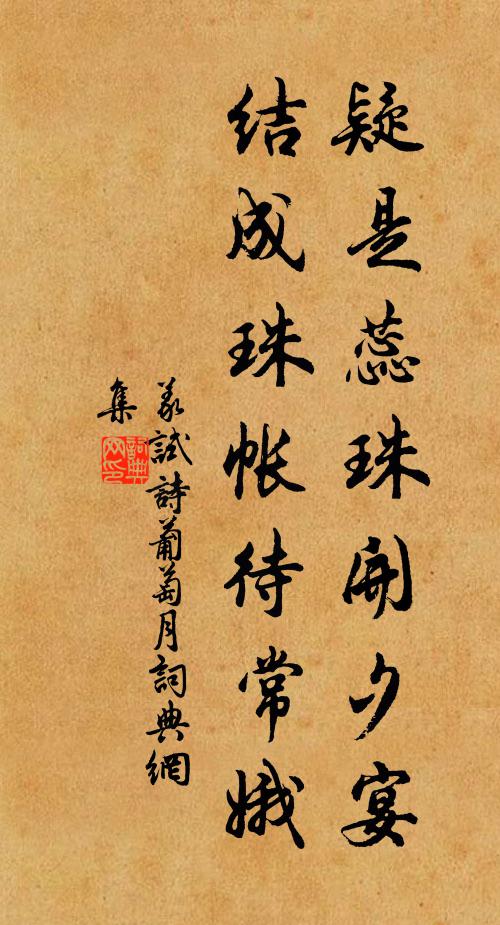 疑是蕊珠開夕宴
结成珠帐待常娥
義試詩葡萄月詞典網
集
詞典
网印